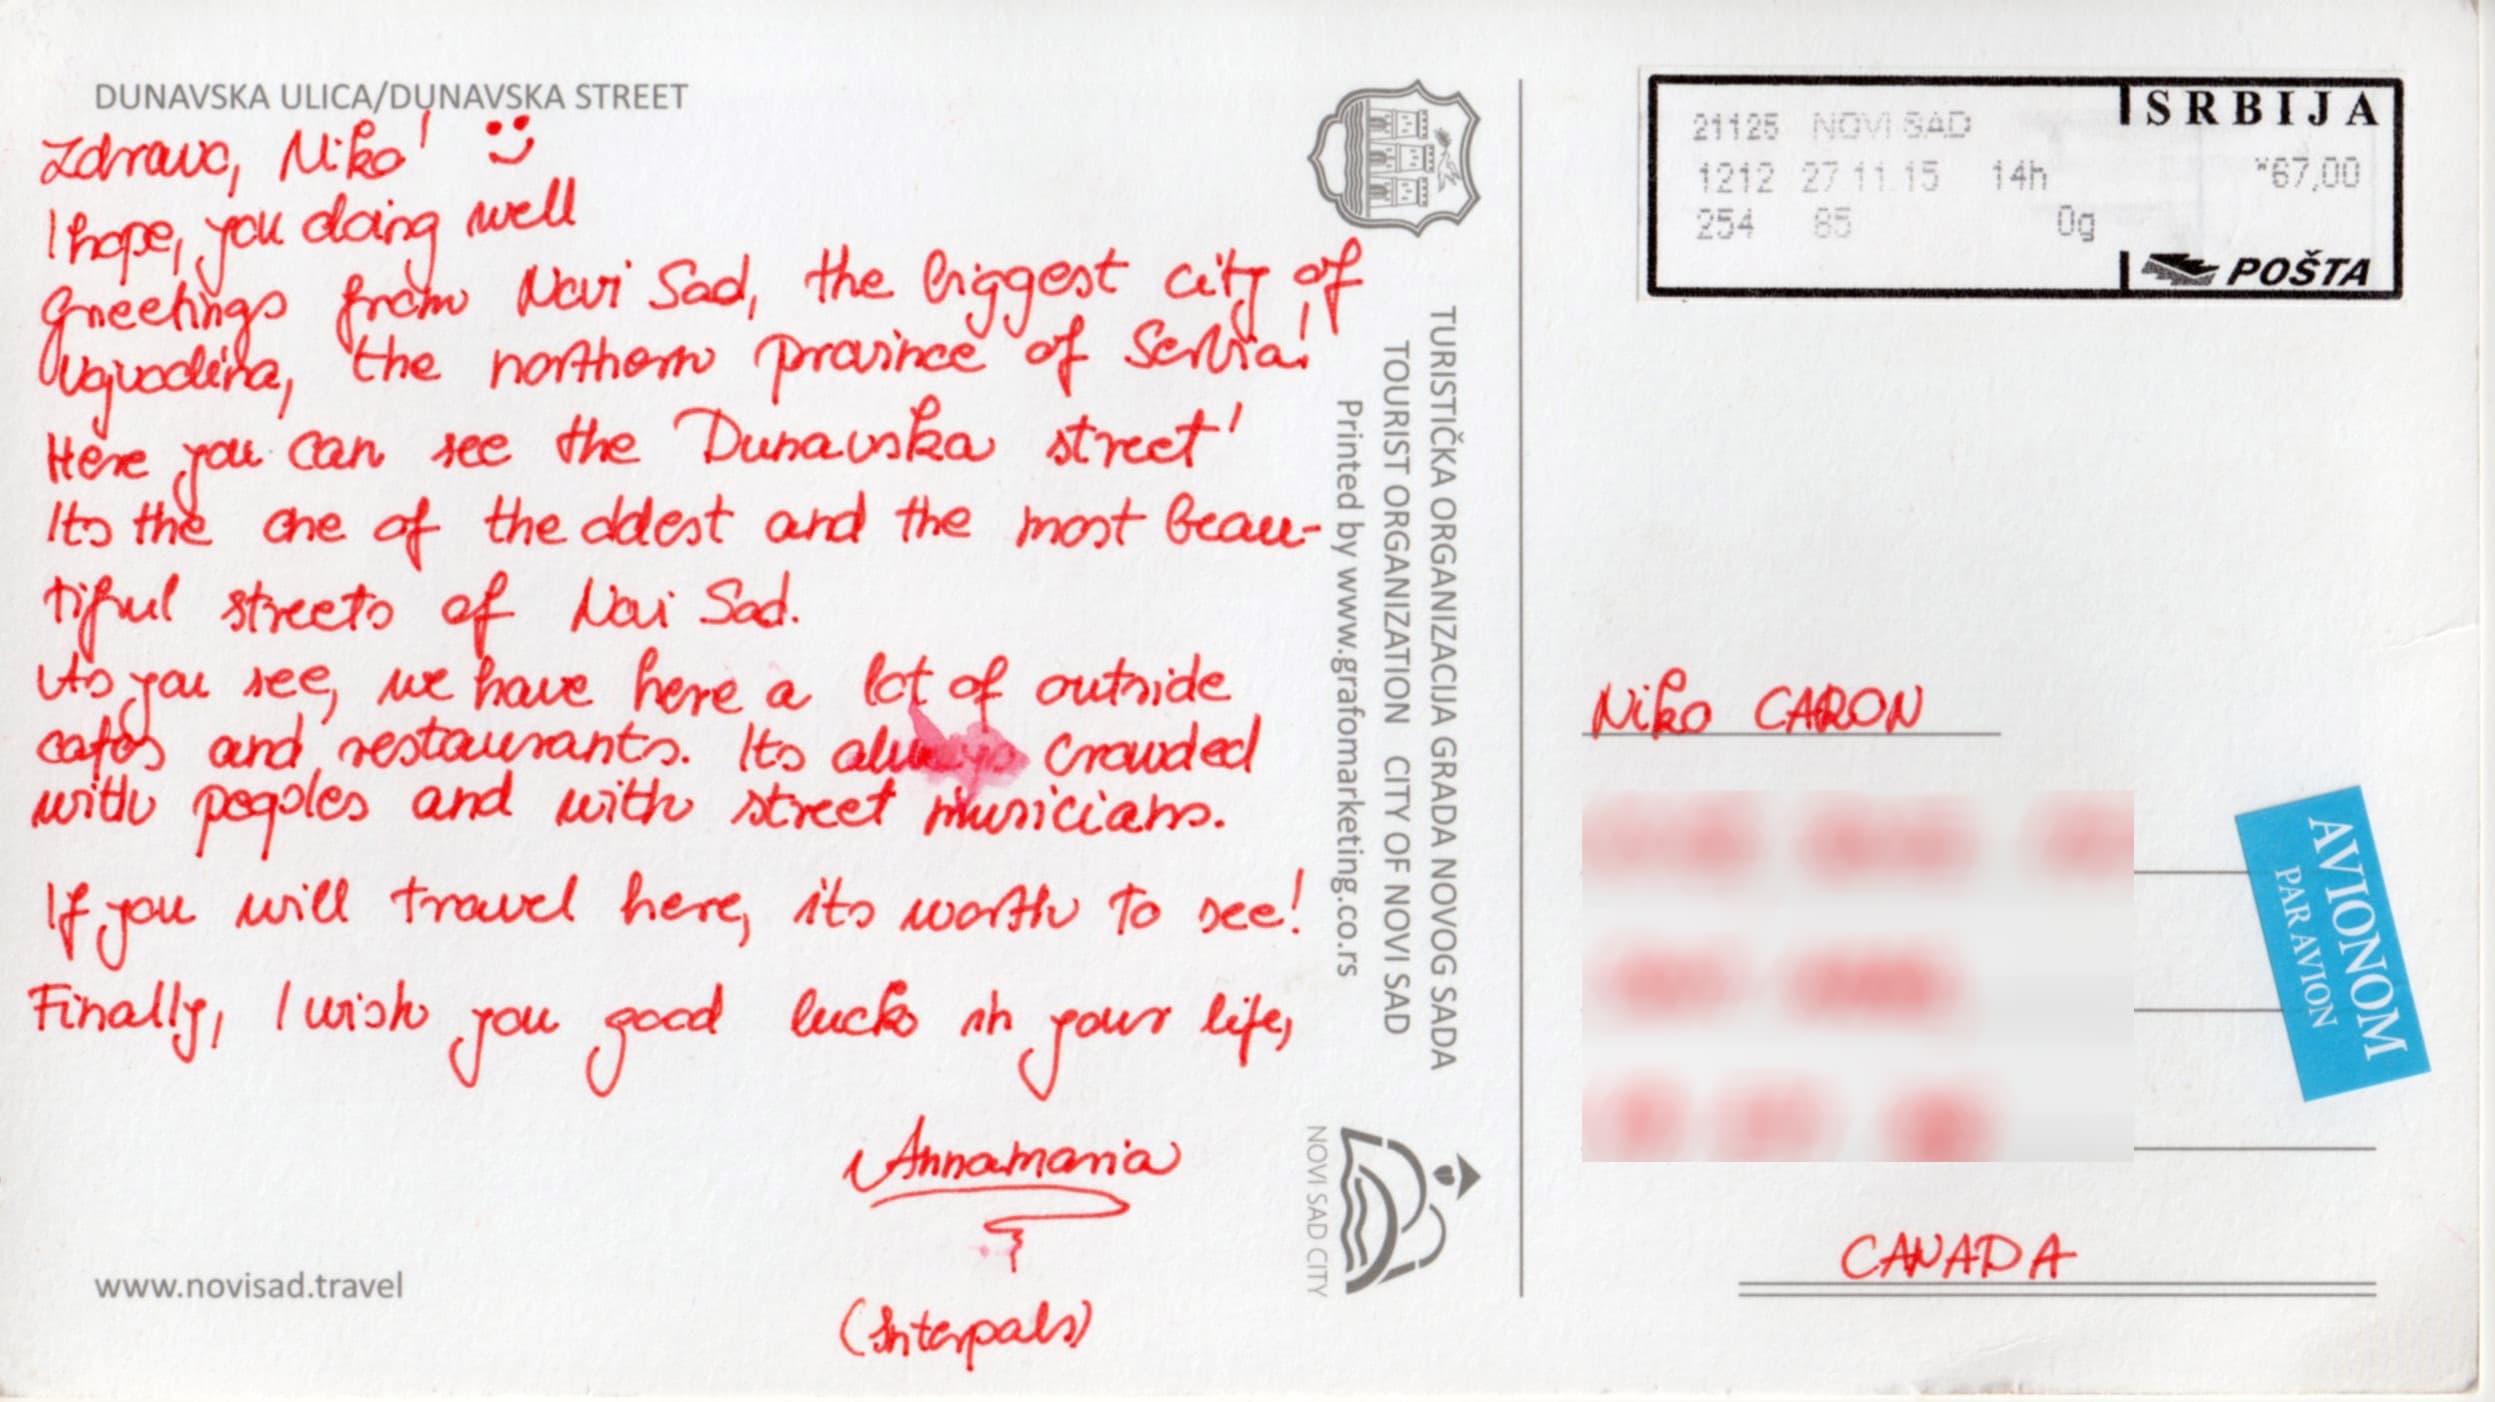 DUNAVSKA ULICA/DUNAVSKA STREET
Zdravo, Niko! :)
I hope, you doing well
Greetings from Novi Sad, the biggest city of
Vojvodina, the northern province of Serbia!
Here you can see the Dunavska street!
Its the one of the oldest and the most beau-
tiful streets of Novi Sad.
As you see, we have here a lot of outside
cafés and restaurants. Its always crowded
with peoples and with street musicians.
If you will travel here, its worth to see!
Finally, I wish you good luck in your life,
Annamaria
(Interpals)
www.novisad.travel
TURISTIČKA ORGANIZACIJA GRADA NOVOG SADA
TOURIST ORGANIZATION CITY OF NOVI SAD
Printed by www.grafomarketing.co.rs
NOVI SAD CITY
SRBIJA
21125 NOVI SAD
1212 27 11 15 14h *67,00
254 85 0g
POŠTA
Niko CARON
AVIONOM
PAR AVION
CANADA